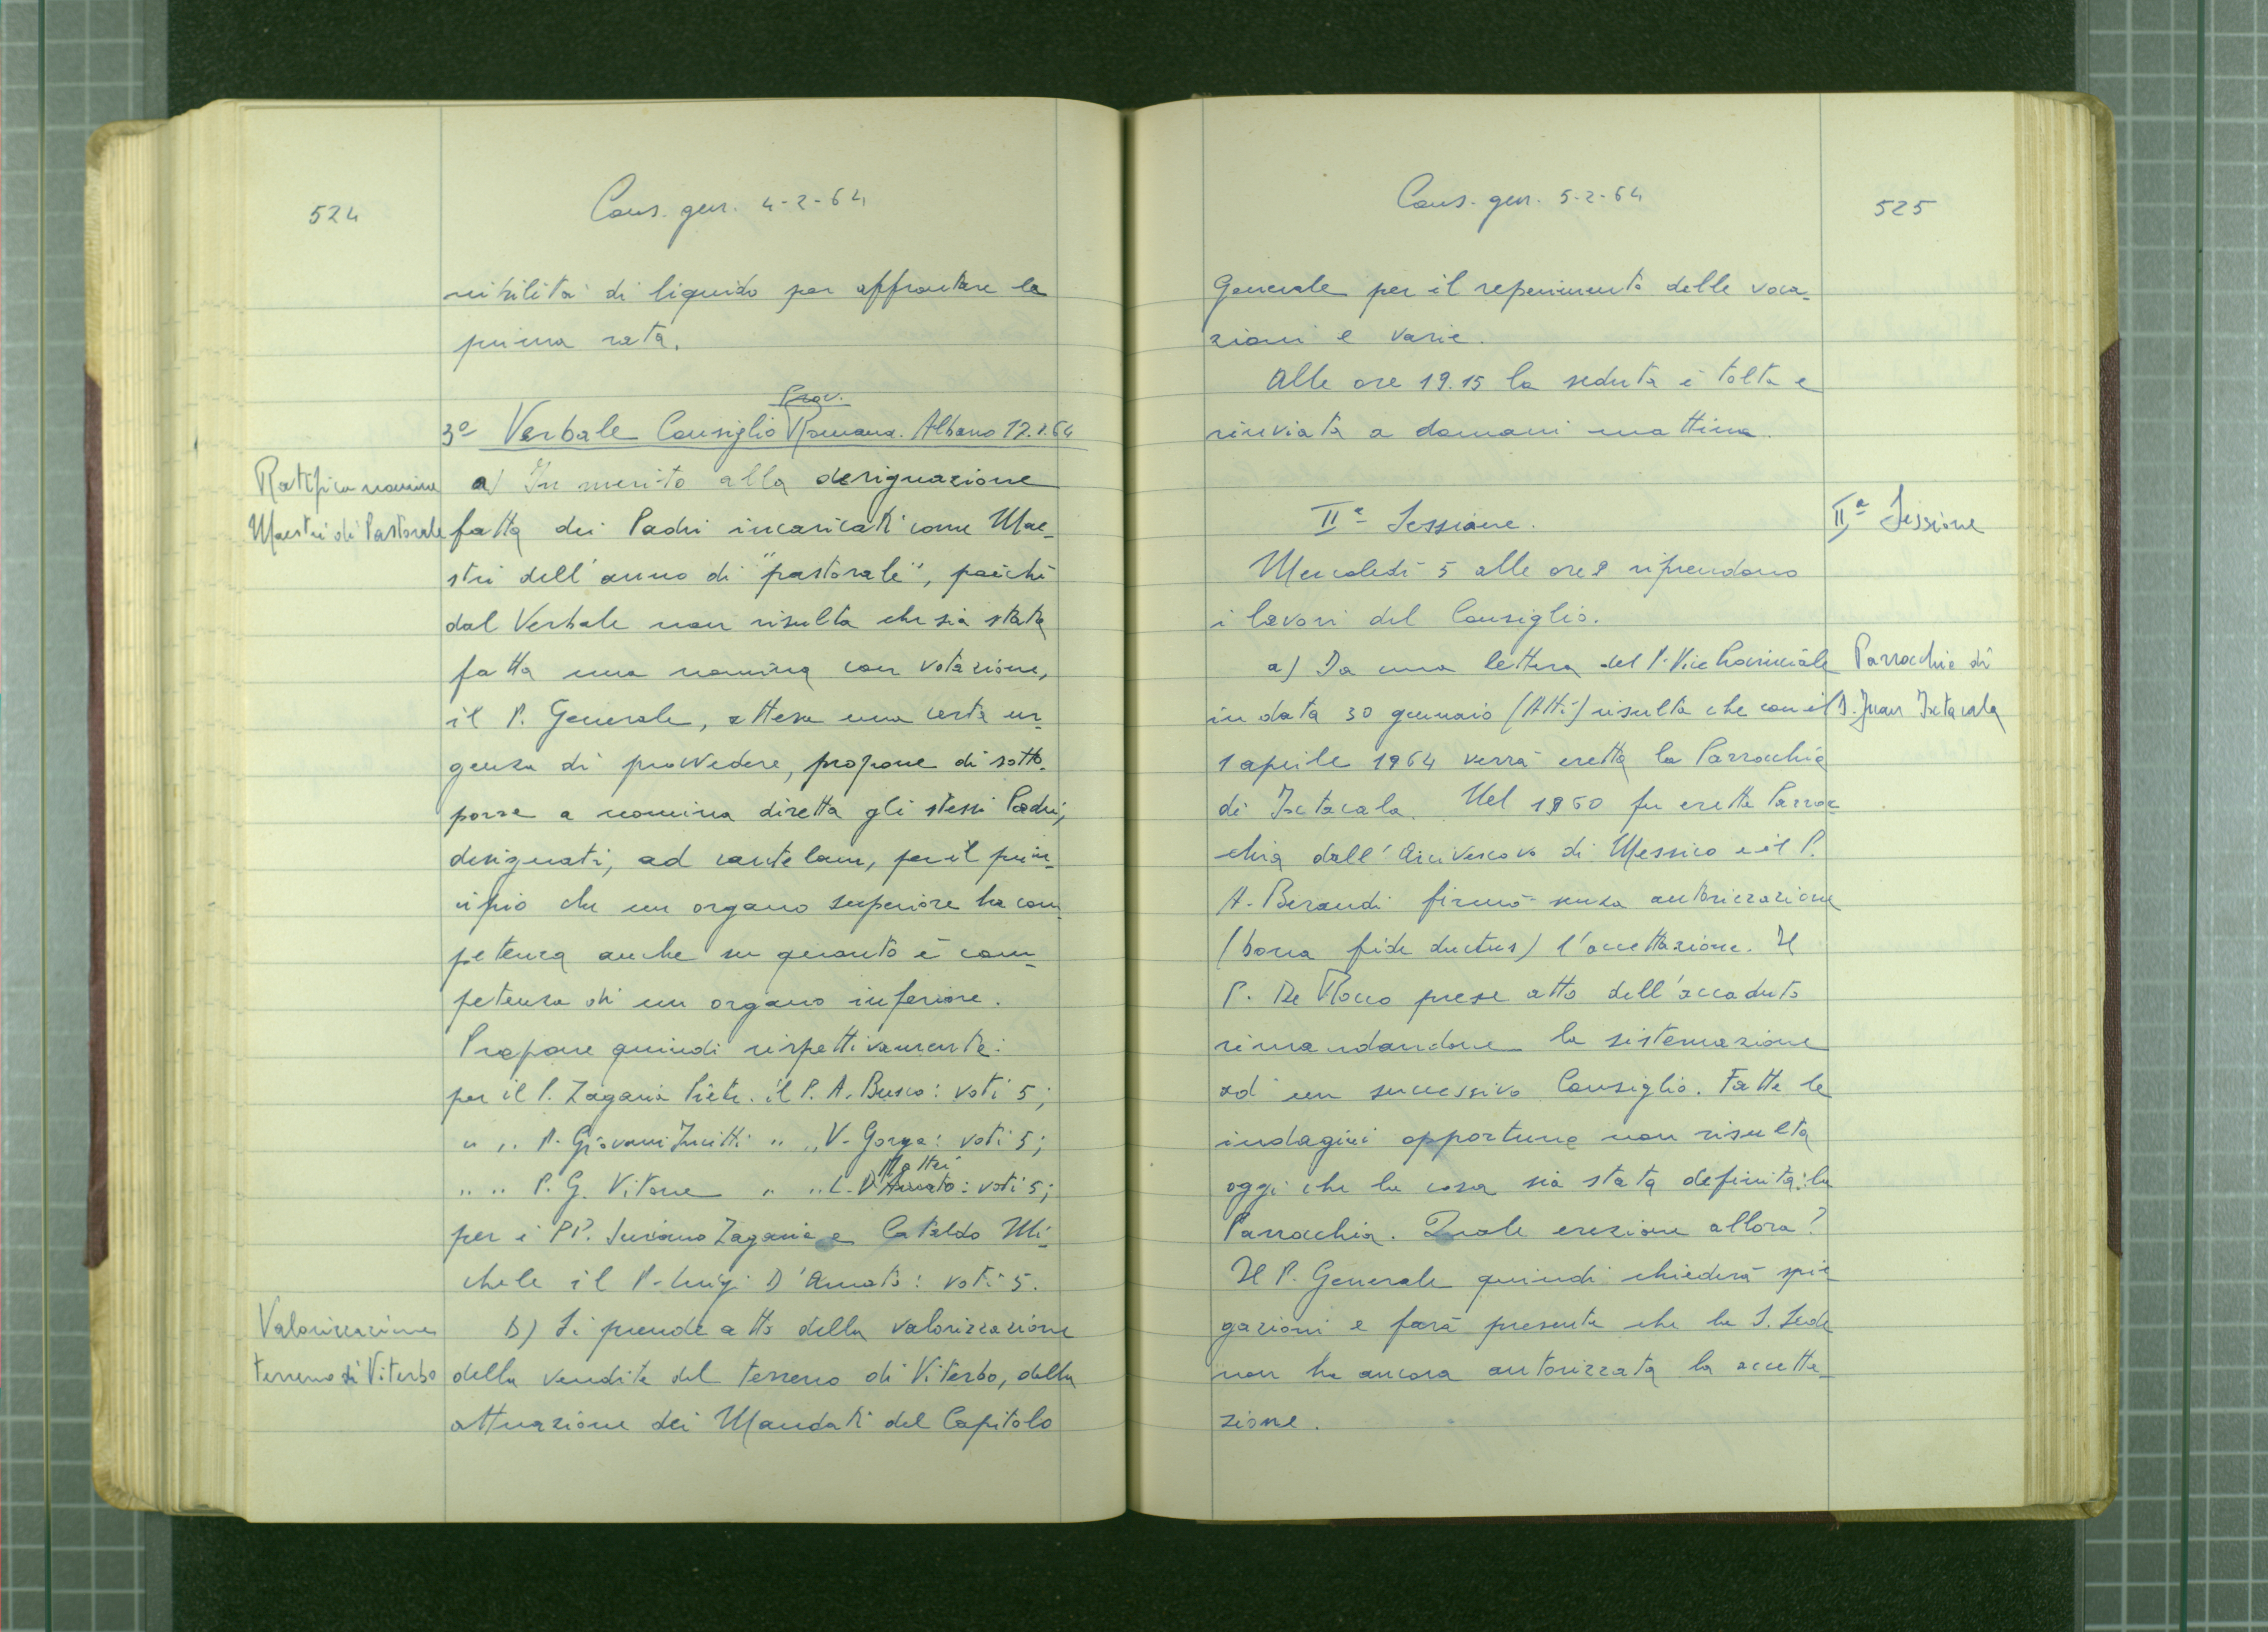 524
Cons. gen. 4-2-64
nibilità di liquido per affrontare la
prima rata.
Prov.
3º Verbale Consiglio Romana. Albano 17.1.64
Ratifica nomine
a) In merito alla designazione
Maestri di Pastorale
fatta dei Padri incaricati come Mae-
stri dell'anno di "pastorale", poiché
dal Verbale non risulta che sia stata
fatta una nomina con votazione,
il P. Generale, attesa una certa ur-
genza di provvedere, propone di sotto-
porre a nomina diretta gli stessi Padri,
designati, ad cautelam, per il prin-
cipio che un organo superiore ha com-
petenza anche su quanto è com-
petenza di un organo inferiore.
Propone quindi rispettivamente:
per il P. Zagaria Pietr. il P. A. Busco: voti 5;
" " P. Giovanni " " V. Gorga: voti 5;
Mattei
" " P. G. Vitone " " L. D'Amato: voti 5;
per i PP. Luciano Zagaria e Cataldo Mi-
chele il P. Luigi D'Amato: voti 5.
Valorizzazione
b) Si prende atto della valorizzazione
terreno di Viterbo
della vendita del terreno di Viterbo, della
attuazione dei Mandati del Capitolo
Cons. gen. 5-2-64
525
Generale per il reperimento delle voca-
zioni e varie.
Alle ore 19.15 la seduta è tolta e
rinviata a domani mattina.
IIª Sessione.
IIª Sessione
Mercoledì 5 alle ore 9 riprendono
i lavori del Consiglio.
a) Da una lettera del P. Vice Provinciale
Parrocchia di
in data 30 gennaio (Atti) risulta che con il
S. Juan Ixtacala
1 aprile 1964 verrà eretta la Parrocchia
di Ixtacala. Nel 1960 fu eretta Parroc-
chia dall'Arcivescovo di Messico e il P.
A. Beraudi firmò senza autorizzazione
(bona fide ductus) l'accettazione. Il
P. De Rocco prese atto dell'accaduto
rimandandone la sistemazione
ad un successivo Consiglio. Fatte le
indagini opportune non risulta
oggi che la cosa sia stata definita: la
Parrocchia. Quale erezione allora?
Il P. Generale quindi chiederà spie
gazioni e farà presente che la S. Sede
non ha ancora autorizzata la accetta-
zione.